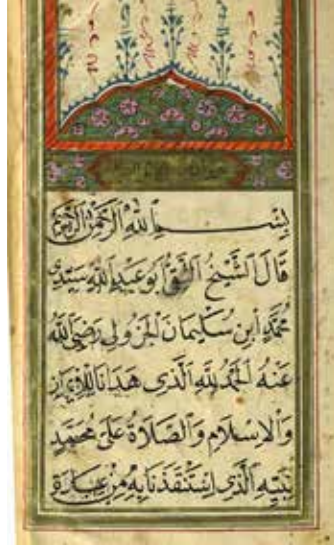 بِسْمِ اللهِ الرَّحْمٰنِ الرَّحِيمِ
قَالَ الشَّيْخُ التَّقِىُّ اَبُو عَبْدِ اللهِ سَيِّدِى
مُحَمَّدِ ابْنِ سُلَيْمَانَ الْجَزُولِى رَضِىَ اللهُ
عَنْهُ الْحَمْدُ لِلّٰهِ الَّذِى هَدَانَا لِلْاِيمَانِ
وَالْاِسْلَامِ وَالصَّلَاةُ عَلٰى مُحَمَّدٍ
نَبِيِّهِ الَّذِى اسْتَنْقَذَنَا بِهِ مِنْ عِبَادَةِ